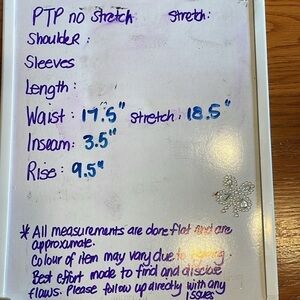 PTP no Stretch Stretch:
Shoulder :
Sleeves
Length :
Waist : 17.5" stretch : 18.5"
Inseam: 3.5"
Rise: 9.5"
* All measurements are done flat and are
approximate.
Colour of item may vary due to
Best effort made to find and disclose
flaws. Please follow up directly with any
issues